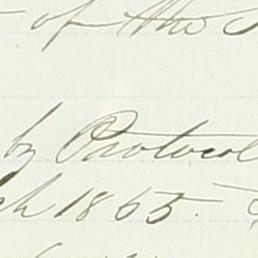 of the
by Protocol
ch 1865.